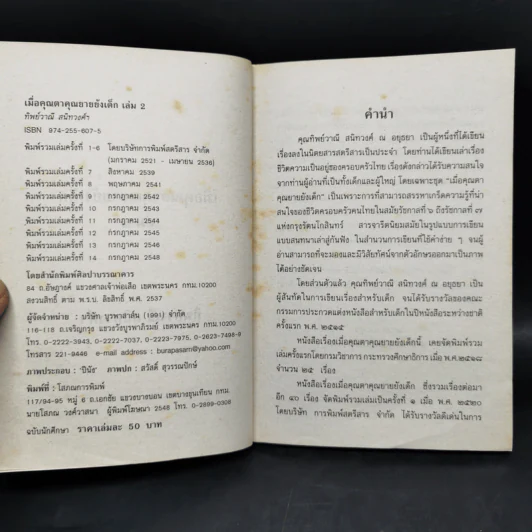 เมื่อคุณตาคุณยายยังเด็ก เล่ม 2
ทิพย์วาณี สนิทวงศ์ฯ
ISBN 974-255-607-5
พิมพ์รวมเล่มครั้งที่ 1-6 โดยบริษัทการพิมพ์สตรีสาร จำกัด
(มกราคม 2521 - เมษายน 2536)
พิมพ์รวมเล่มครั้งที่ 7 สิงหาคม 2539
พิมพ์รวมเล่มครั้งที่ 8 พฤษภาคม 2541
พิมพ์รวมเล่มครั้งที่ 9 กรกฎาคม 2542
พิมพ์รวมเล่มครั้งที่ 10 กรกฎาคม 2543
พิมพ์รวมเล่มครั้งที่ 11 กรกฎาคม 2544
พิมพ์รวมเล่มครั้งที่ 12 กรกฎาคม 2545
พิมพ์รวมเล่มครั้งที่ 13 กรกฎาคม 2546
พิมพ์รวมเล่มครั้งที่ 14 กรกฎาคม 2548
โดยสำนักพิมพ์ศิลปาบรรณาคาร
84 ถ.อัษฎางค์ แขวงศาลเจ้าพ่อเสือ เขตพระนคร กทม.10200
สงวนสิทธิ์ ตาม พ.ร.บ. ลิขสิทธิ์ พ.ศ. 2537
ผู้จัดจำหน่าย : บริษัท บูรพาสาส์น (1991) จำกัด
116-118 ถ.เจริญกรุง แขวงวังบูรพาภิรมย์ เขตพระนคร กทม.10200
โทร. 0-2222-3943, 0-2223-7037, 0-2222-7075, 0-2623-7498-9
โทรสาร 221-9446 e-mail address : burapasarn@yahoo.com
ภาพประกอบ : 'ปีนัง' ภาพปก : สวัสดิ์ สุวรรณปักษ์
พิมพ์ที่ : โสภณการพิมพ์
117/94-95 หมู่ 6 ถ.เอกชัย แขวงบางบอน เขตบางขุนเทียน กทม.
นายโสภณ วงศ์วาสนา ผู้พิมพ์โฆษณา 2548 โทร. 0-2899-0308
ฉบับนักศึกษา ราคาเล่มละ 50 บาท
คำนำ
คุณทิพย์วาณี สนิทวงศ์ ณ อยุธยา เป็นผู้หนึ่งที่ได้เขียน
เรื่องลงในนิตยสารสตรีสารเป็นประจำ โดยท่านได้เขียนเล่าเรื่อง
ชีวิตความเป็นอยู่ของครอบครัวไทย เรื่องดังกล่าวได้รับความสนใจ
จากท่านผู้อ่านที่เป็นทั้งเด็กและผู้ใหญ่ โดยเฉพาะชุด "เมื่อคุณตา
คุณยายยังเด็ก" เป็นเพราะการที่สามารถสรรหาเกร็ดความรู้ที่น่า
สนใจของชีวิตครอบครัวคนไทยในสมัยรัชกาลที่ ๖ ถึงรัชกาลที่ ๗
แห่งกรุงรัตนโกสินทร์ สารจารีตนิยมสมัยในรูปแบบการเขียน
แบบสนทนาเล่าสู่กันฟัง ในสำนวนการเขียนที่ใช้คำง่าย ๆ จนผู้
อ่านสามารถที่จะมองและมีวิสัยทัศน์จากตัวอักษรออกมาเป็นภาพ
ได้อย่างชัดเจน
โดยส่วนตัวแล้ว คุณทิพย์วาณี สนิทวงศ์ ณ อยุธยา เป็น
ผู้สันทัดในการเขียนเรื่องสำหรับเด็ก จนได้รับรางวัลของคณะ
กรรมการประกวดแต่งหนังสือสำหรับเด็กในปีหนังสือระหว่างชาติ
ครั้งแรก พ.ศ. ๒๕๑๕
หนังสือเรื่องเมื่อคุณตาคุณยายยังเด็กนี้ เคยจัดพิมพ์รวม
เล่มครั้งแรกโดยกรมวิชาการ กระทรวงศึกษาธิการ เมื่อ พ.ศ. ๒๕๑๘
จำนวน ๒๕ เรื่อง
หนังสือเรื่องเมื่อคุณตาคุณยายยังเด็ก ซึ่งรวมเรื่องต่อมา
อีก ๔๐ เรื่อง จัดพิมพ์รวมเล่มเป็นครั้งที่ ๑ เมื่อ พ.ศ. ๒๕๒๐
โดยบริษัท การพิมพ์สตรีสาร จำกัด ได้รับรางวัลดีเด่นในการ